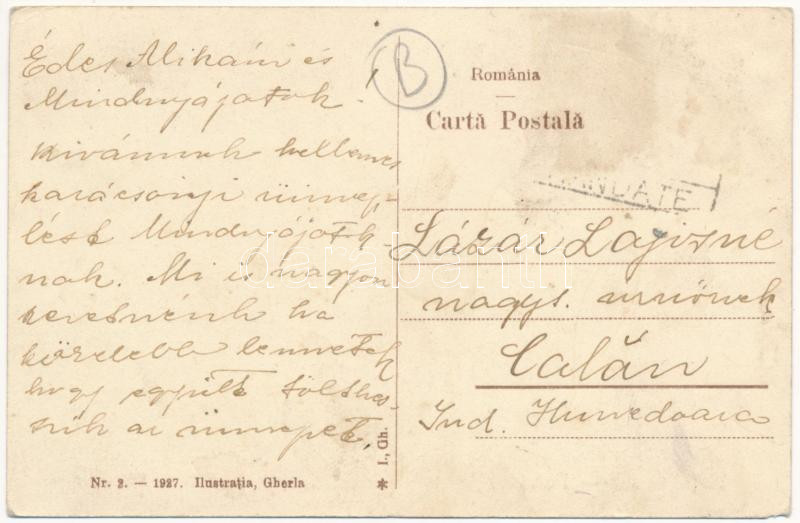 Édes Miháni és
Mindnyájatok!
Kivánunk kellemes
karácsonyi ünnep-
lést Mindnyájatok-
nak. Mi is nagyon
szeretnénk ha
közelebb lennétek
hogy együtt tölthes-
sük az ünnepet.
B
România
Cartă Postală
MANDATE
Lázár Lajosné
nagys. urnőnek
Calăn
Jud. Hunedoara
Nr. 2. — 1927. Ilustrația, Gherla
* I., Gh.
darabanth